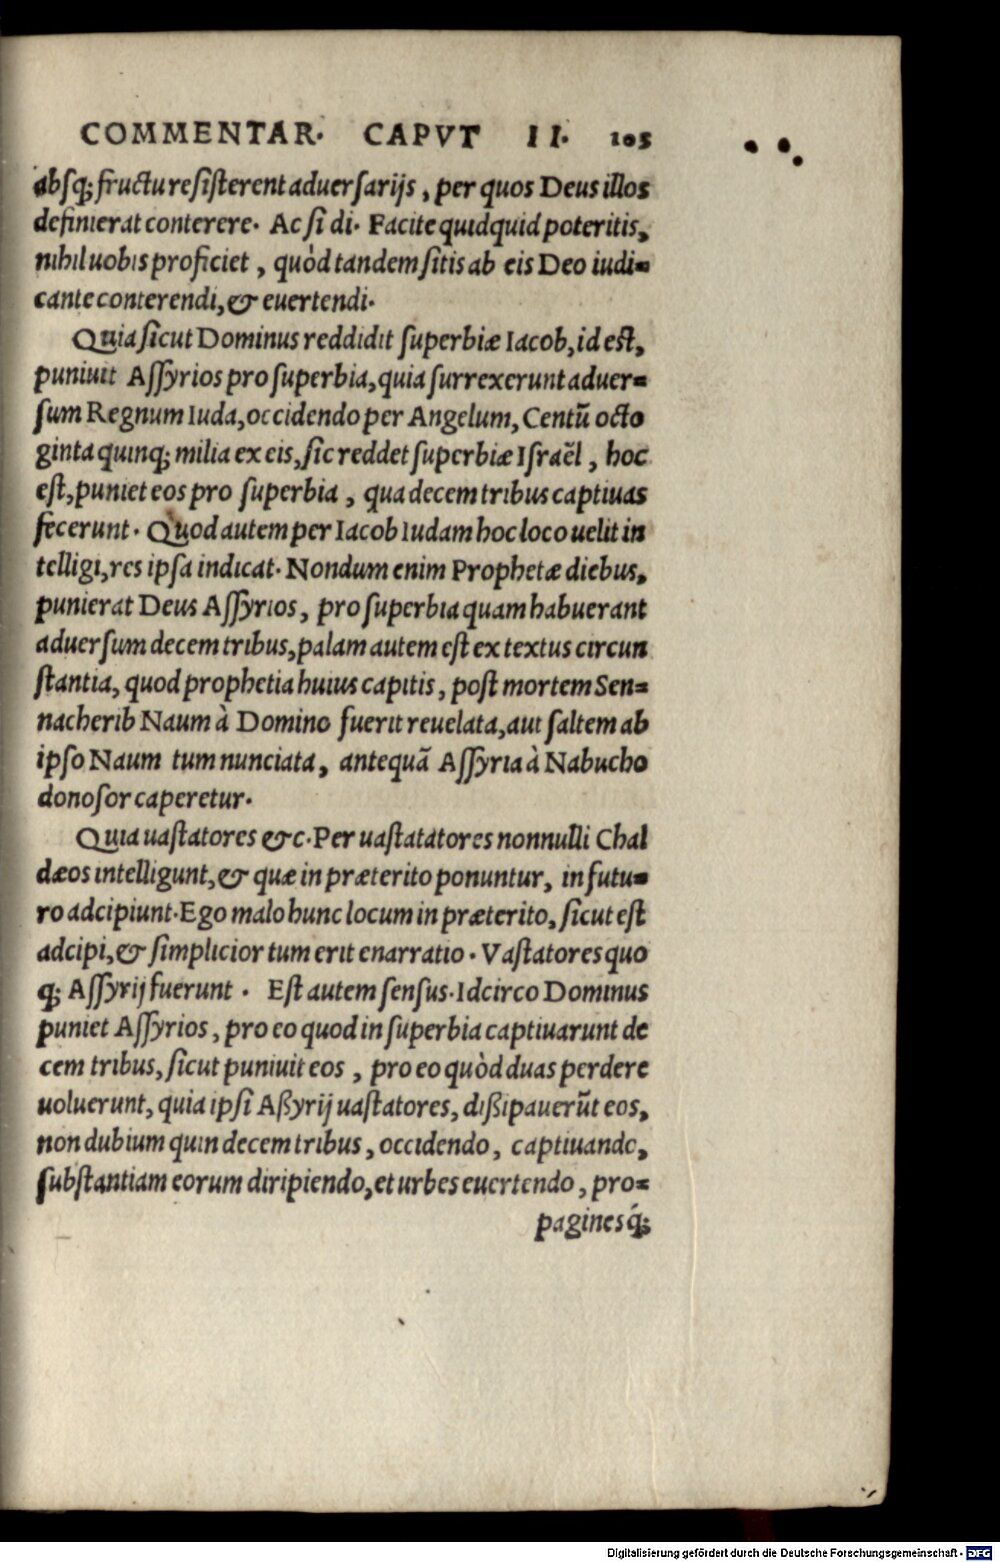 COMMENTAR. CAPVT II. 105
absq; fructu resisterent aduersarijs, per quos Deus illos
definierat conterere. Ac si di. Facite quidquid poteritis,
nihil uobis proficiet, quòd tandem sitis ab eis Deo iudi=
cante conterendi, & euertendi.
Quia sicut Dominus reddidit superbiæ Iacob, id est,
puniuit Assyrios pro superbia, quia surrexerunt aduer=
sum Regnum Iuda, occidendo per Angelum, Centũ octo
ginta quinq; milia ex eis, sic reddet superbiæ Israẽl, hoc
est, puniet eos pro superbia, qua decem tribus captiuas
fecerunt. Quod autem per Iacob Iudam hoc loco uelit in
telligi, res ipsa indicat. Nondum enim Prophetæ diebus,
punierat Deus Assyrios, pro superbia quam habuerant
aduersum decem tribus, palam autem est ex textus circun
stantia, quod prophetia huius capitis, post mortem Sen=
nacherib Naum à Domino fuerit reuelata, aut saltem ab
ipso Naum tum nunciata, antequã Assyria à Nabucho
donosor caperetur.
Quia uastatores &c. Per uastatatores nonnulli Chal
dæos intelligunt, & quæ in præterito ponuntur, in futu=
ro adcipiunt. Ego malo hunc locum in præterito, sicut est
adcipi, & simplicior tum erit enarratio. Vastatores quo
q; Assyrij fuerunt. Est autem sensus. Idcirco Dominus
puniet Assyrios, pro eo quod in superbia captiuarunt de
cem tribus, sicut puniuit eos, pro eo quòd duas perdere
uoluerunt, quia ipsi Aßyrij uastatores, dißipauerũt eos,
non dubium quin decem tribus, occidendo, captiuando,
substantiam eorum diripiendo, et urbes euertendo, pro=
paginesq́;
Digitalisierung gefördert durch die Deutsche Forschungsgemeinschaft - DFG